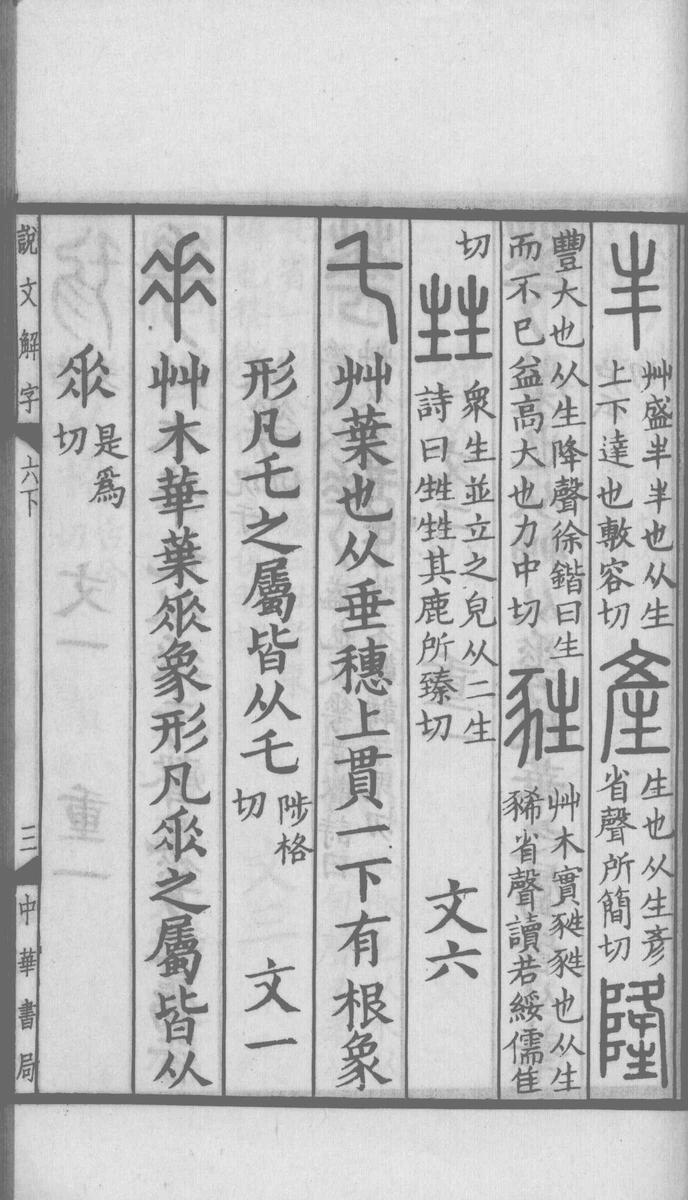 丰
艸盛丰丰也从生
上下達也敷容切
產
生也从生彥
省聲所簡切
隆
豐大也从生降聲徐鍇曰生
而不已益高大也力中切
甤
艸木實甤甤也从生
豨省聲讀若綏儒隹
切
甡
眾生並立之皃从二生
詩曰甡甡其鹿所臻切
文六
乇艸葉也从垂穗上貫一下有根象
形凡乇之屬皆从乇
陟格
切
文一
𠂹艸木華葉𠂹象形凡𠂹之屬皆从
𠂹
是爲
切
說文解字 六下 三 中華書局